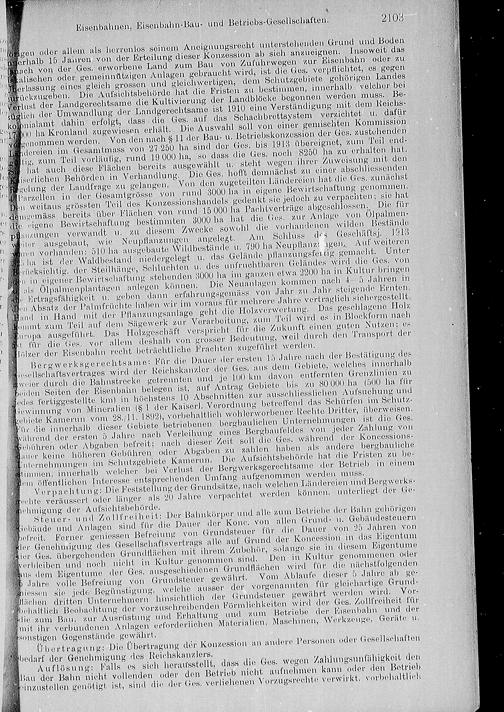 Eisenbahnen, Eisenbahn-Bau- und Betriebs-Gesellschaften. 2103
oder allem als herrenlos seinem Aneignungsrecht unterstehenden Grund und Boden
15 Jahren von der Erteilung dieser Konzession ab sich anzueignen. Insoweit das
nach von der Ges. erworbene Land zum Bau von Zufuhrwegen zur Eisenbahn oder zu
oder gemeinnützigen Anlagen gebraucht wird, ist die Ges. verpflichtet, es gegen
eines gleich grossen und gleichwertigen, dem Schutzgebiete gehörigen Landes
Die Aufsichtsbehörde hat die Fristen zu bestimmen, innerhalb welcher bei
der Landgerechtsame die Kultivierung der Landblöcke begonnen werden muss. Be-
der Umwandlung der Landgerechtsame ist 1910 eine Verständigung mit dem Reichs-
dahin erfolgt, dass die Ges. auf das Schachbrettsystem verzichtet u. dafür
ha Kronland zugewiesen erhält. Die Auswahl soll von einer gemischten Kommission
werden. Von den nach § 11 der Bau- u. Betriebskonzession der Ges. zustehenden
im Gesamtmass von 27 250 ha sind der Ges. bis 1913 übereignet, zum Teil end-
zum Teil vorläufig, rund 19 000 ha, so dass die Ges. noch 8250 ha zu erhalten hat.
hat auch diese Flächen bereits ausgewählt u. steht wegen ihrer Zuweisung mit den
Behörden in Verhandlung. Die Ges. hofft demnächst zu einer abschliessenden
der Landfrage zu gelangen. Von den zugeteilten Ländereien hat die Ges. zunächst
Parzellen in der Gesamtgrösse von rund 3000 ha in eigene Bewirtschaftung genommen.
weitaus grössten Teil des Konzessionslandes gedenkt sie jedoch zu verpachten; sie hat
bereits über Flächen von rund 15 000 ha Pachtverträge abgeschlossen. Die für
eigene Bewirtschaftung bestimmten 3000 ha hat die Ges. zur Anlage von Ölpalmen-
verwandt u. zu diesem Zwecke sowohl die vorhandenen wilden Bestände
ausgebaut, wie Neupflanzungen angelegt. Am Schluss des Geschäftsj. 1913
vorhanden: 510 ha ausgebaute Wildbestände u. 790 ha Neupflanzungen. Auf weiteren
ha ist der Waldbestand niedergelegt u. das Gelände pflanzungsfertig gemacht. Unter
der Steilhänge, Schluchten u. des unfruchtbaren Geländes wird die Ges. von
in eigener Bewirtschaftung stehenden 3000 ha im ganzen etwa 2200 ha in Kultur bringen
als Ölpalmenplantagen anlegen können. Die Neuanlagen kommen nach 4–5 Jahren in
Ertragsfähigkeit u. geben dann erfahrungsgemäss von Jahr zu Jahr steigende Ernten.
Absatz der Palmfrüchte haben wir im voraus für mehrere Jahre vertraglich sichergestellt.
in Hand mit der Pflanzungsanlage geht die Holzverwertung. Das geschlagene Holz
zum Teil auf dem Sägewerk zur Verarbeitung, zum Teil wird es in Blockform nach
ausgeführt. Das Holzgeschäft verspricht für die Zukunft einen guten Nutzen; es
für die Ges. vor allem deshalb von grosser Bedeutung, weil durch den Transport der
Hölzer der Eisenbahn recht beträchtliche Frachten zugeführt werden.
Bergwerksgerechtsame: Für die Dauer der ersten 15 Jahre nach der Bestätigung des
wird der Reichskanzler der Ges. aus dem Gebiete, welches innerhalb
durch die Bahnstrecke getrennten und je 100 km davon entfernten Grenzlinien zu
beiden Seiten der Eisenbahn belegen ist, auf Antrag Gebiete bis zu 80 000 ha (500 ha für
fertiggestellte km) in höchstens 10 Abschnitten zur ausschliesslichen Aufsuchung und
Gewinnung von Mineralien (§ 1 der Kaiserl. Verordnung betreffend das Schürfen im Schutz-
gebiete Kamerun vom 28./11. 1892), vorbehaltlich wohlerworbener Rechte Dritter, überweisen.
Für die innerhalb dieser Gebiete betriebenen bergbaulichen Unternehmungen ist die Ges.
während der ersten 5 Jahre nach Verleihung eines Bergbaufeldes von jeder Zahlung von
Gebühren oder Abgaben befreit; nach dieser Zeit soll die Ges. während der Koncessions-
keine höheren Gebühren oder Abgaben zu zahlen haben als andere bergbauliche
Unternehmungen im Schutzgebiete Kamerun. Die Aufsichtsbehörde hat die Fristen zu be-
stimmen, innerhalb welcher bei Verlust der Bergwerksgerechtsame der Betrieb in einem
den öffentlichen Interesse entsprechenden Umfang aufgenommen werden muss.
Verpachtung: Die Feststellung der Grundsätze, nach welchen Ländereien und Bergwerks-
rechte veräussert oder länger als 20 Jahre verpachtet werden können, unterliegt der Ge-
nehmigung der Aufsichtsbehörde.
Steuer- und Zollfreiheit: Der Bahnkörper und alle zum Betriebe der Bahn gehörigen
Gebäude und Anlagen sind für die Dauer der Konc. von allen Grund- u. Gebäudesteuern
befreit. Ferner geniessen Befreiung von Grundsteuer für die Dauer von 25 Jahren von
der Genehmigung des Gesellschaftsvertrags alle auf Grund der Konzession in das Eigentum
der Ges. übergehenden Grundflächen mit ihrem Zubehör, solange sie in diesem Eigentume
verbleiben und noch nicht in Kultur genommen sind. Den in Kultur genommenen oder
aus dem Eigentume der Ges. ausgeschiedenen Grundflächen wird für die nächstfolgenden
5 Jahre volle Befreiung von Grundsteuer gewährt. Vom Ablaufe dieser 5 Jahre ab ge-
niessen sie jede Begünstigung, welche ausser der vorgenannten für gleichartige Grund-
flächen dritten Unternehmern hinsichtlich der Grundsteuer gewährt werden wird. Vor-
behaltlich Beobachtung der vorzuschreibenden Förmlichkeiten wird der Ges. Zollfreiheit für
die zum Bau, zur Ausrüstung und Erhaltung und zum Betriebe der Eisenbahn und der
mit ihr verbundenen Anlagen erforderlichen Materialien, Maschinen, Werkzeuge, Geräte u.
sonstigen Gegenstände gewährt.
Übertragung: Die Übertragung der Konzession an andere Personen oder Gesellschaften
bedarf der Genehmigung des Reichskanzlers.
Auflösung: Falls es sich herausstellt, dass die Ges. wegen Zahlungsunfähigkeit den
Bau der Bahn nicht vollenden oder den Betrieb nicht aufnehmen kann oder den Betrieb
einzustellen genötigt ist, sind die der Ges. verliehenen Vorzugsrechte verwirkt, vorbehaltlich